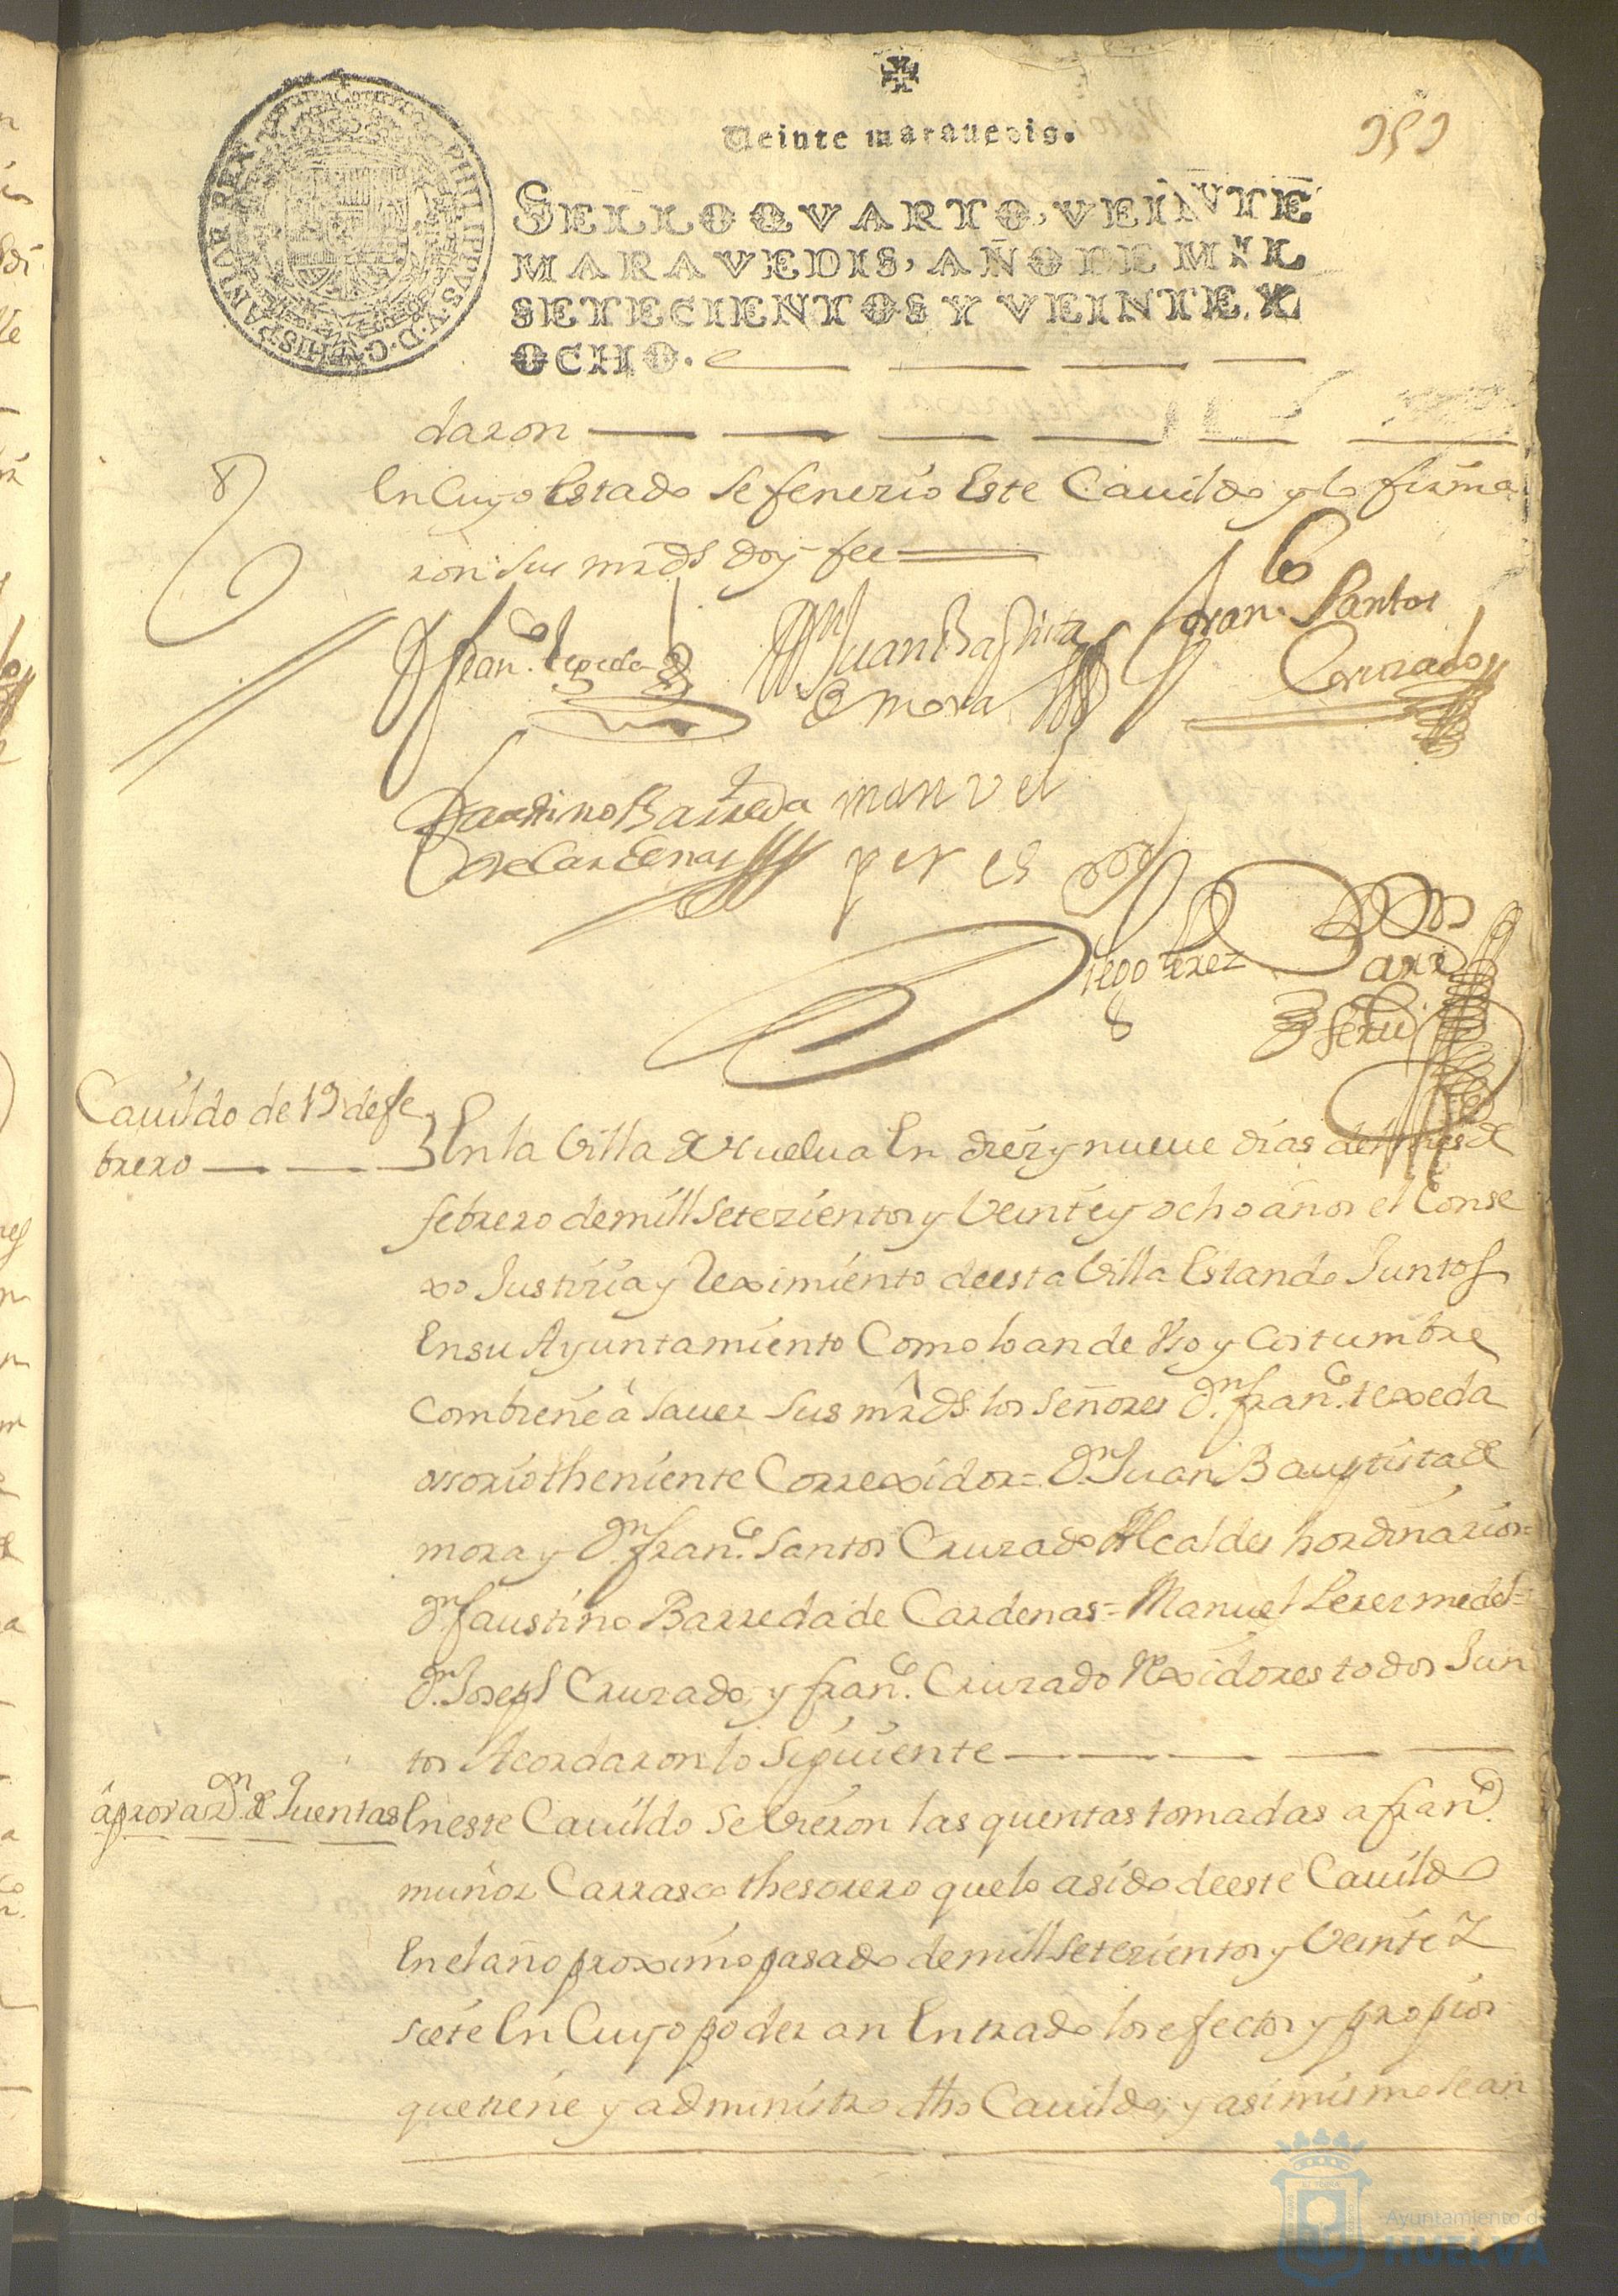 Veinte maravedis.
SELLO QVARTO, VEINTE
MARAVEDIS, AÑO DE MIL
SETECIENTOS Y VEINTE Y
OCHO.
PHILIPPUS V D G HISPANIAR REX
daron
En Cuyo Estado se fenezio Este Cauildo y lo firma
ron sus mrds doy fee
Dn Franco texeda
Dn Juan Baptista
de mora
Franco Santos
Cruzado
Faustino Barreda
de Cardenas
manuel
peres
Diego Perez
Cauildo de 19 de fe
brero
En la Villa de Huelua En diez y nueue dias del mes de
febrero de mill setezientos y Veinte y ocho años el Conse
xo Justizia y Reximiento de esta Villa Estando Juntos
En su Ayuntamiento Como lo an de Vso y Costumbre
Combiene â sauer sus mrds los señores Dn franco texeda
ossorio theniente Correxidor = Dn Juan Bauptista de
mora y Dn franco santos Cruzado Alcaldes hordinarios =
Dn faustino Barreda de Cardenas = Manuel Perez medel =
Dn Joseph Cruzado, y franco Cruzado Rexidores todos Jun
tos Acordaron lo siguiente
âprovazon de Quentas
En este Cauildo se Vieron las quentas tomadas a franco
muñoz Carrasco thesorero que lo a sido de este Cauildo
En el año proximo pasado de mill setezientos y Veinte y
siete En Cuyo poder an Entrado los efectos y propios
que tiene y administra dho Cauildo, y asimismo se an
Ayuntamiento de
HUELVA